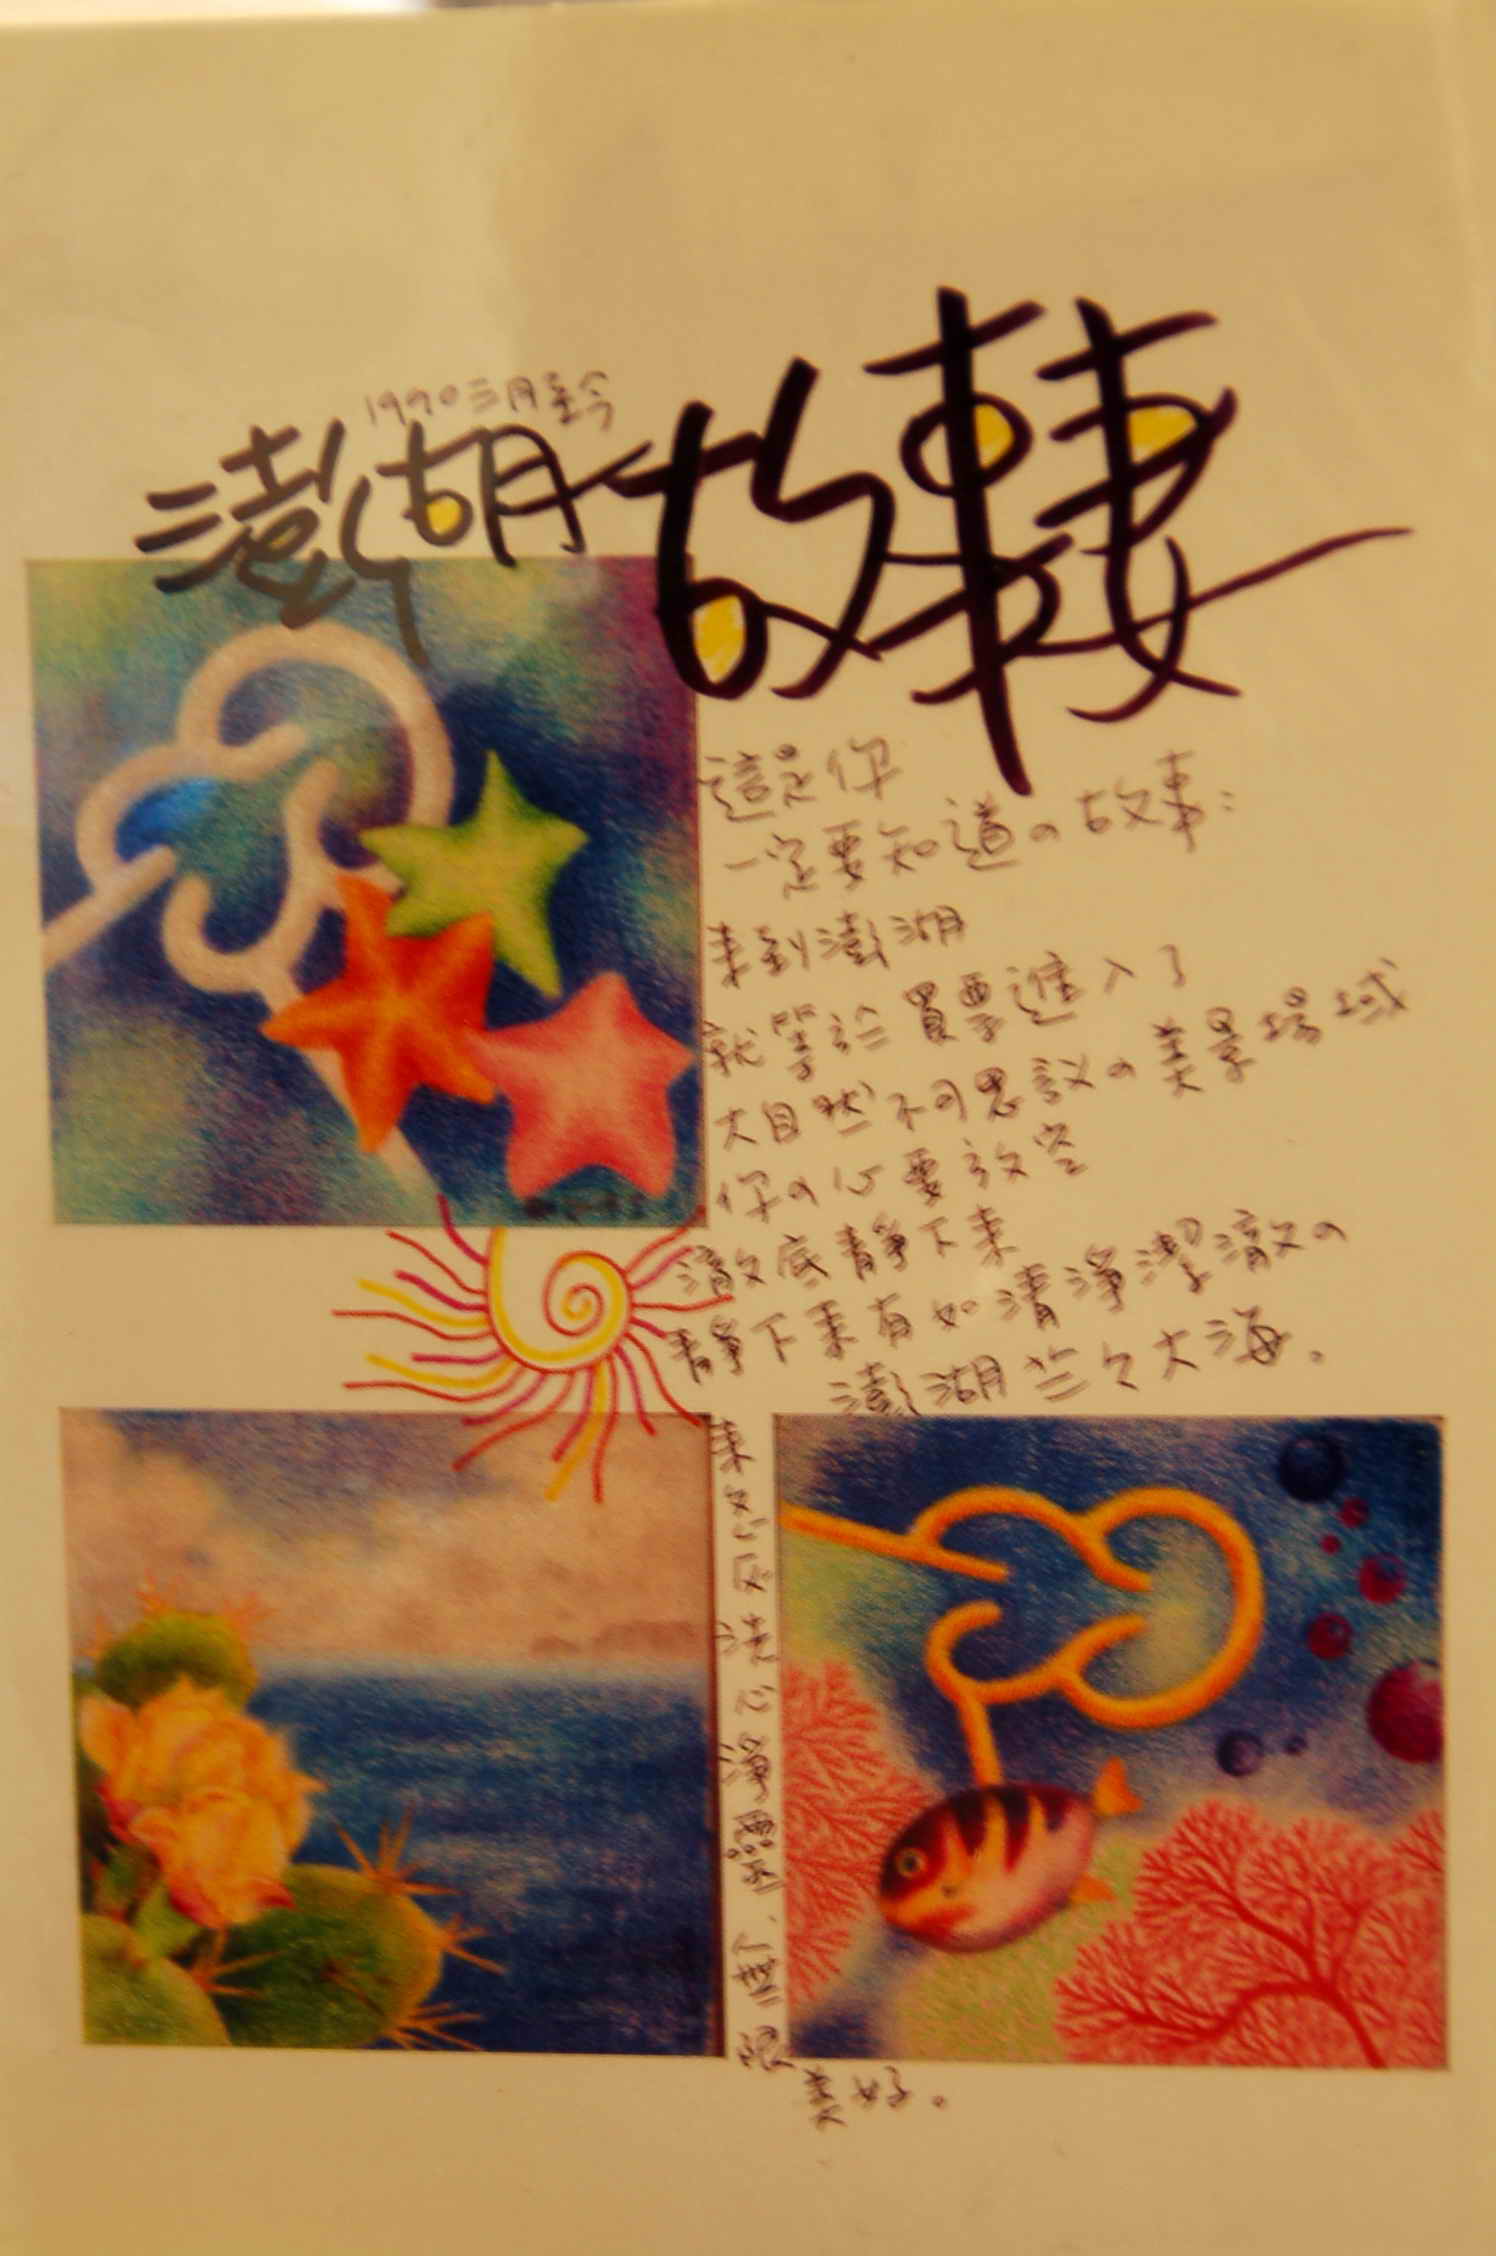 1990三月至今
澎湖故事妻
這是你
一定要知道の故事：
來到澎湖
就等於買票進入了
大自然不可思議の美景場域
你の心要放空
澈底靜下來
靜下來有如清淨潔澈の
澎湖芒々大海。
美好。